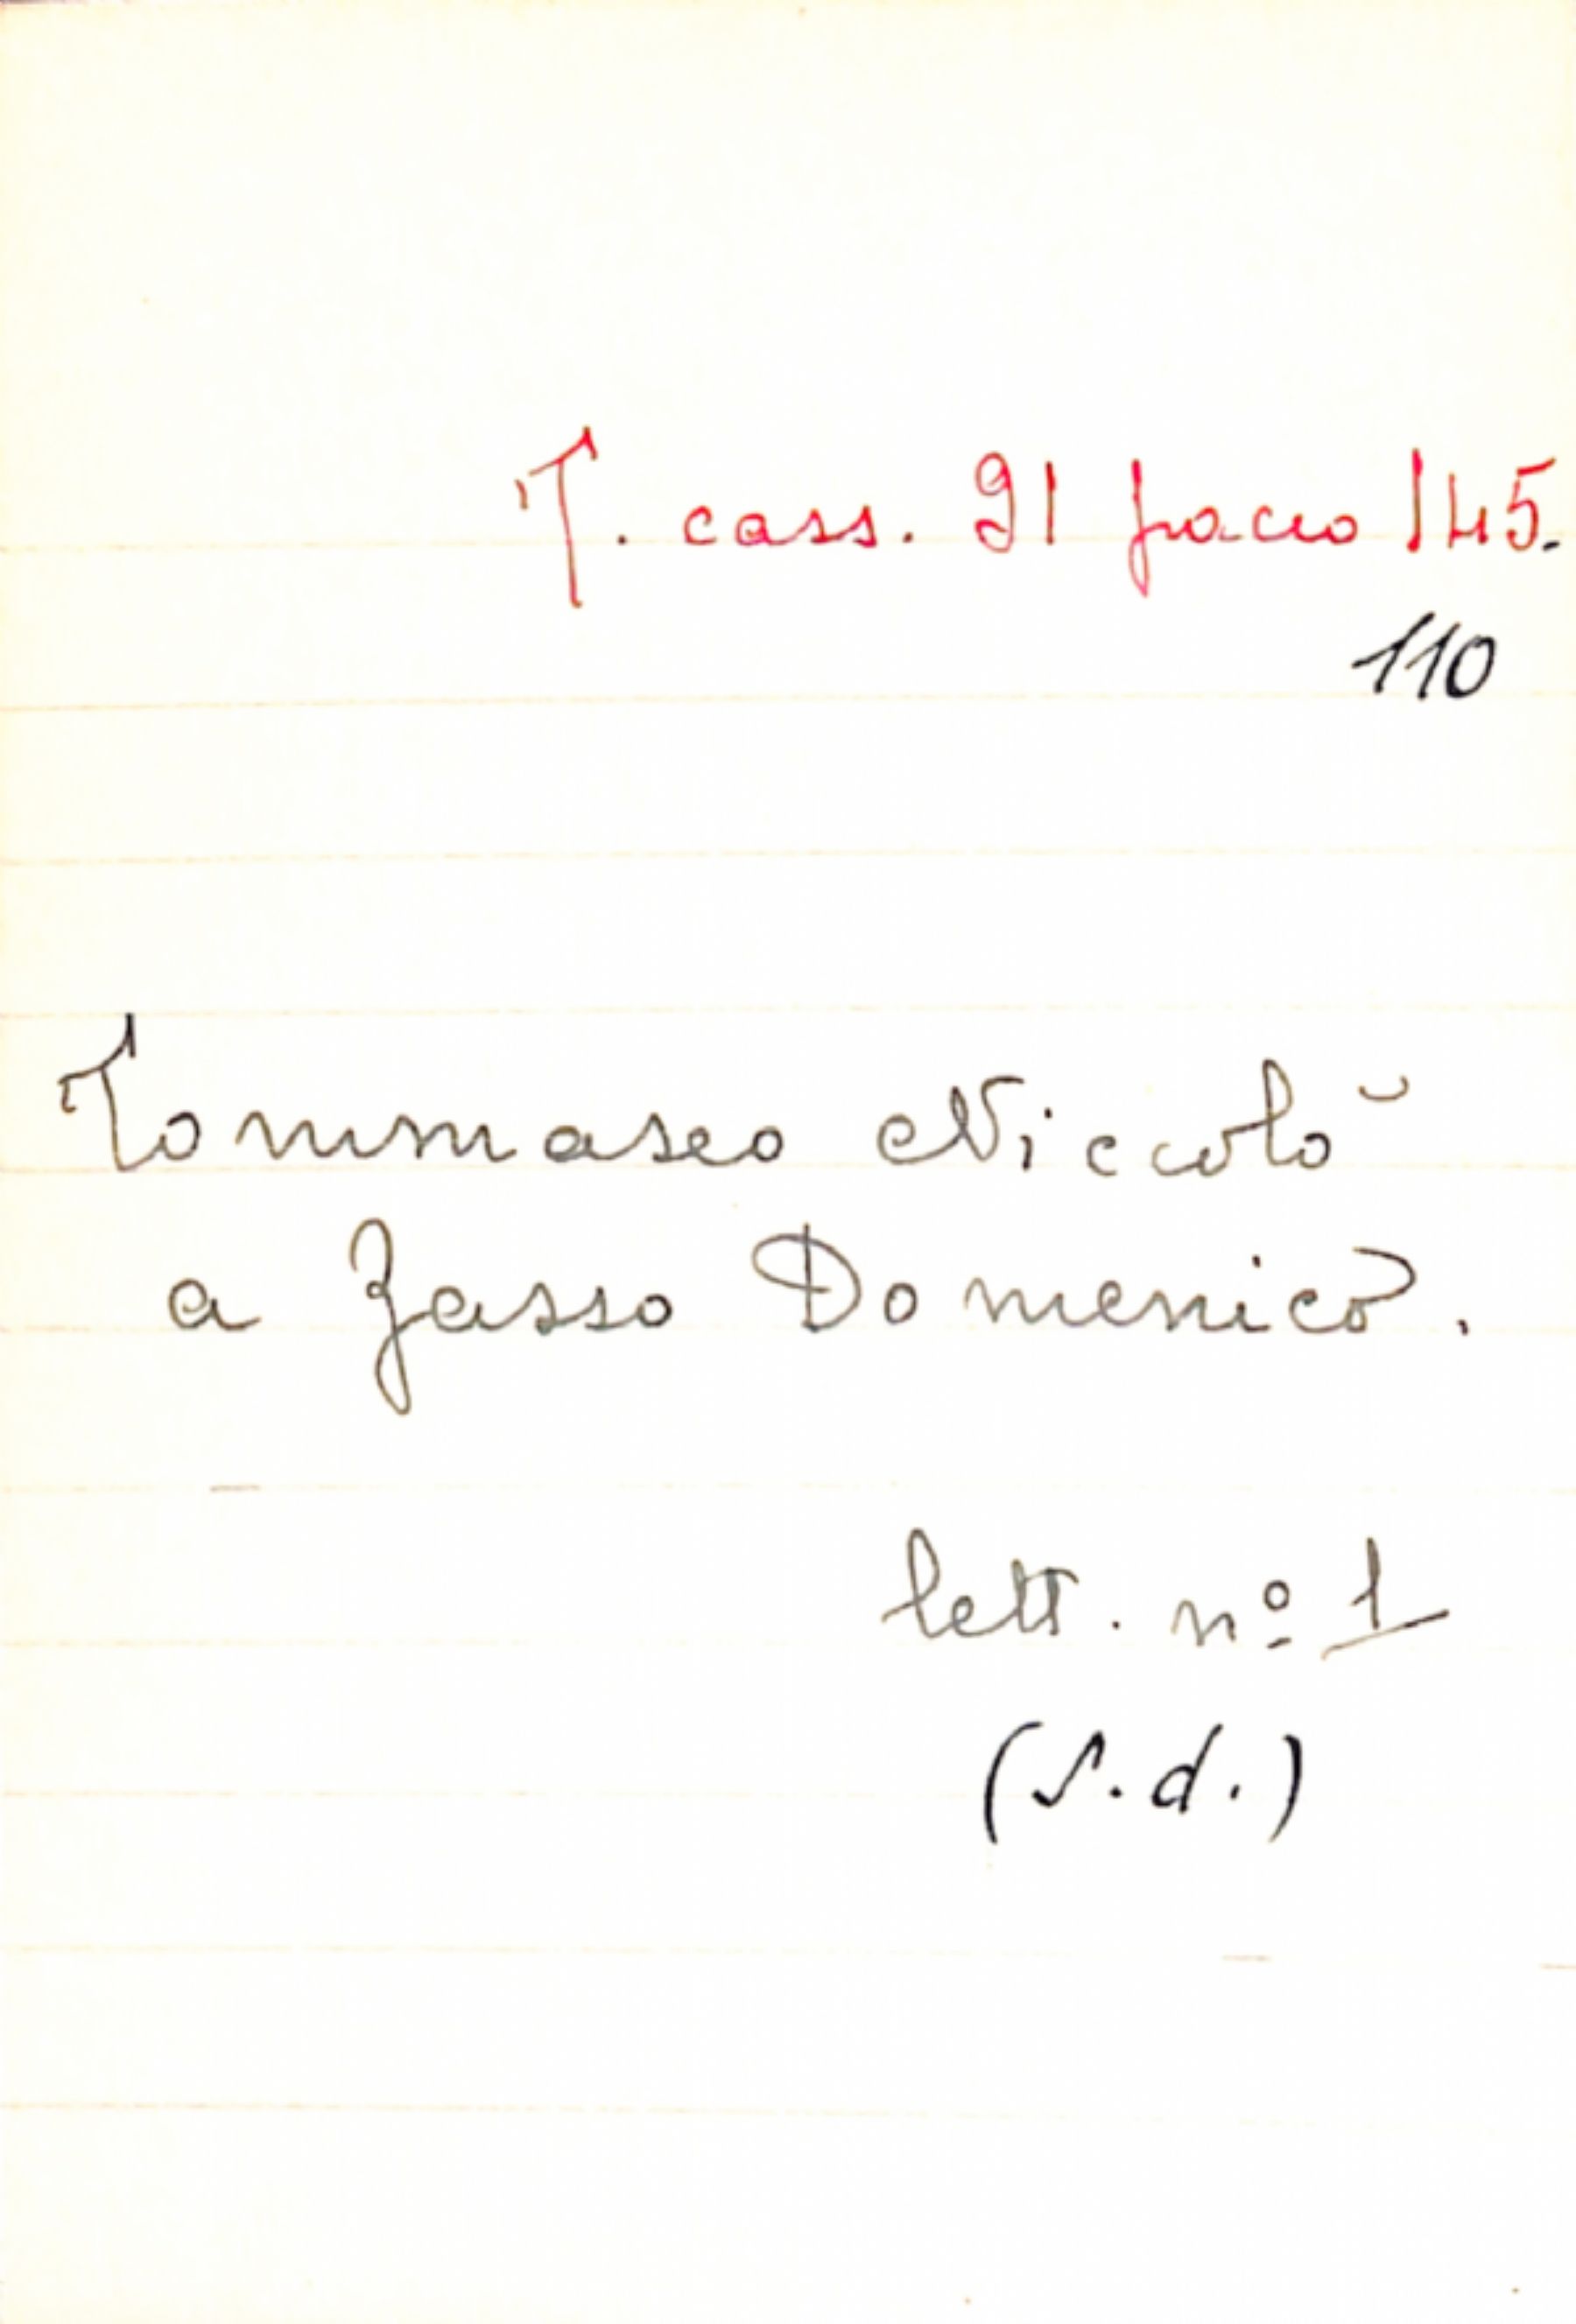 T. cass. 91 pacco 145.
110
Tommaseo Niccolò
a Zasso Domenico.
lett. nº 1
(s.d.)